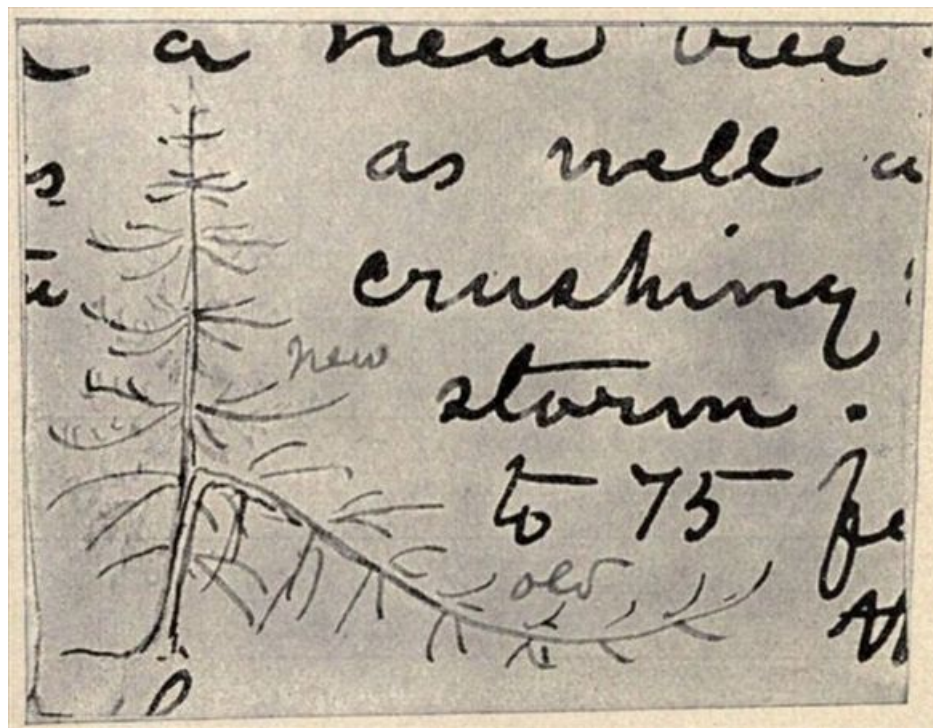 a new tree
as well
crushing
new
storm.
to 75
old